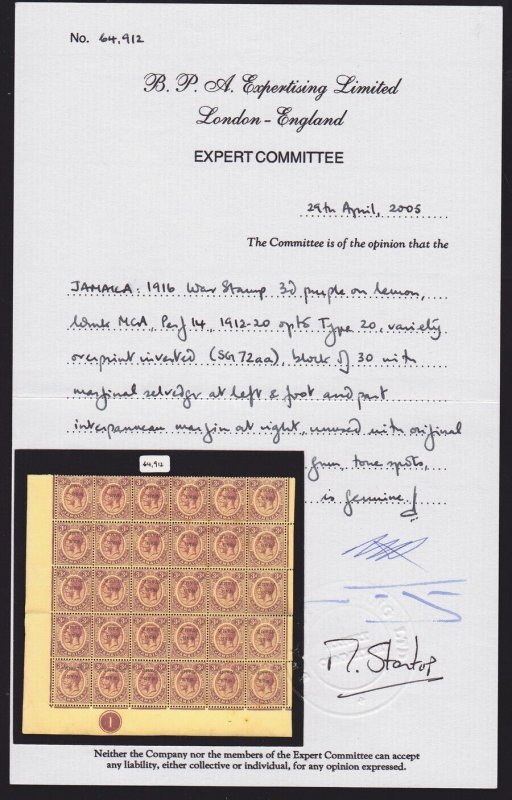 No. 64,912
B. P. A. Expertising Limited
London - England
EXPERT COMMITTEE
29th April, 2005
The Committee is of the opinion that the
JAMAICA: 1916 War Stamp 3d purple on lemon,
wmk MCA, Perf 14, 1912-20 opts Type 20, variety
overprint inverted (SG 72aa), block of 30 with
marginal selvedge at left & foot and part
interpanneau margin at right, unused with original
gum, tone spots,
is genuine
64,912
1
M. Startup
Neither the Company nor the members of the Expert Committee can accept
any liability, either collective or individual, for any opinion expressed.